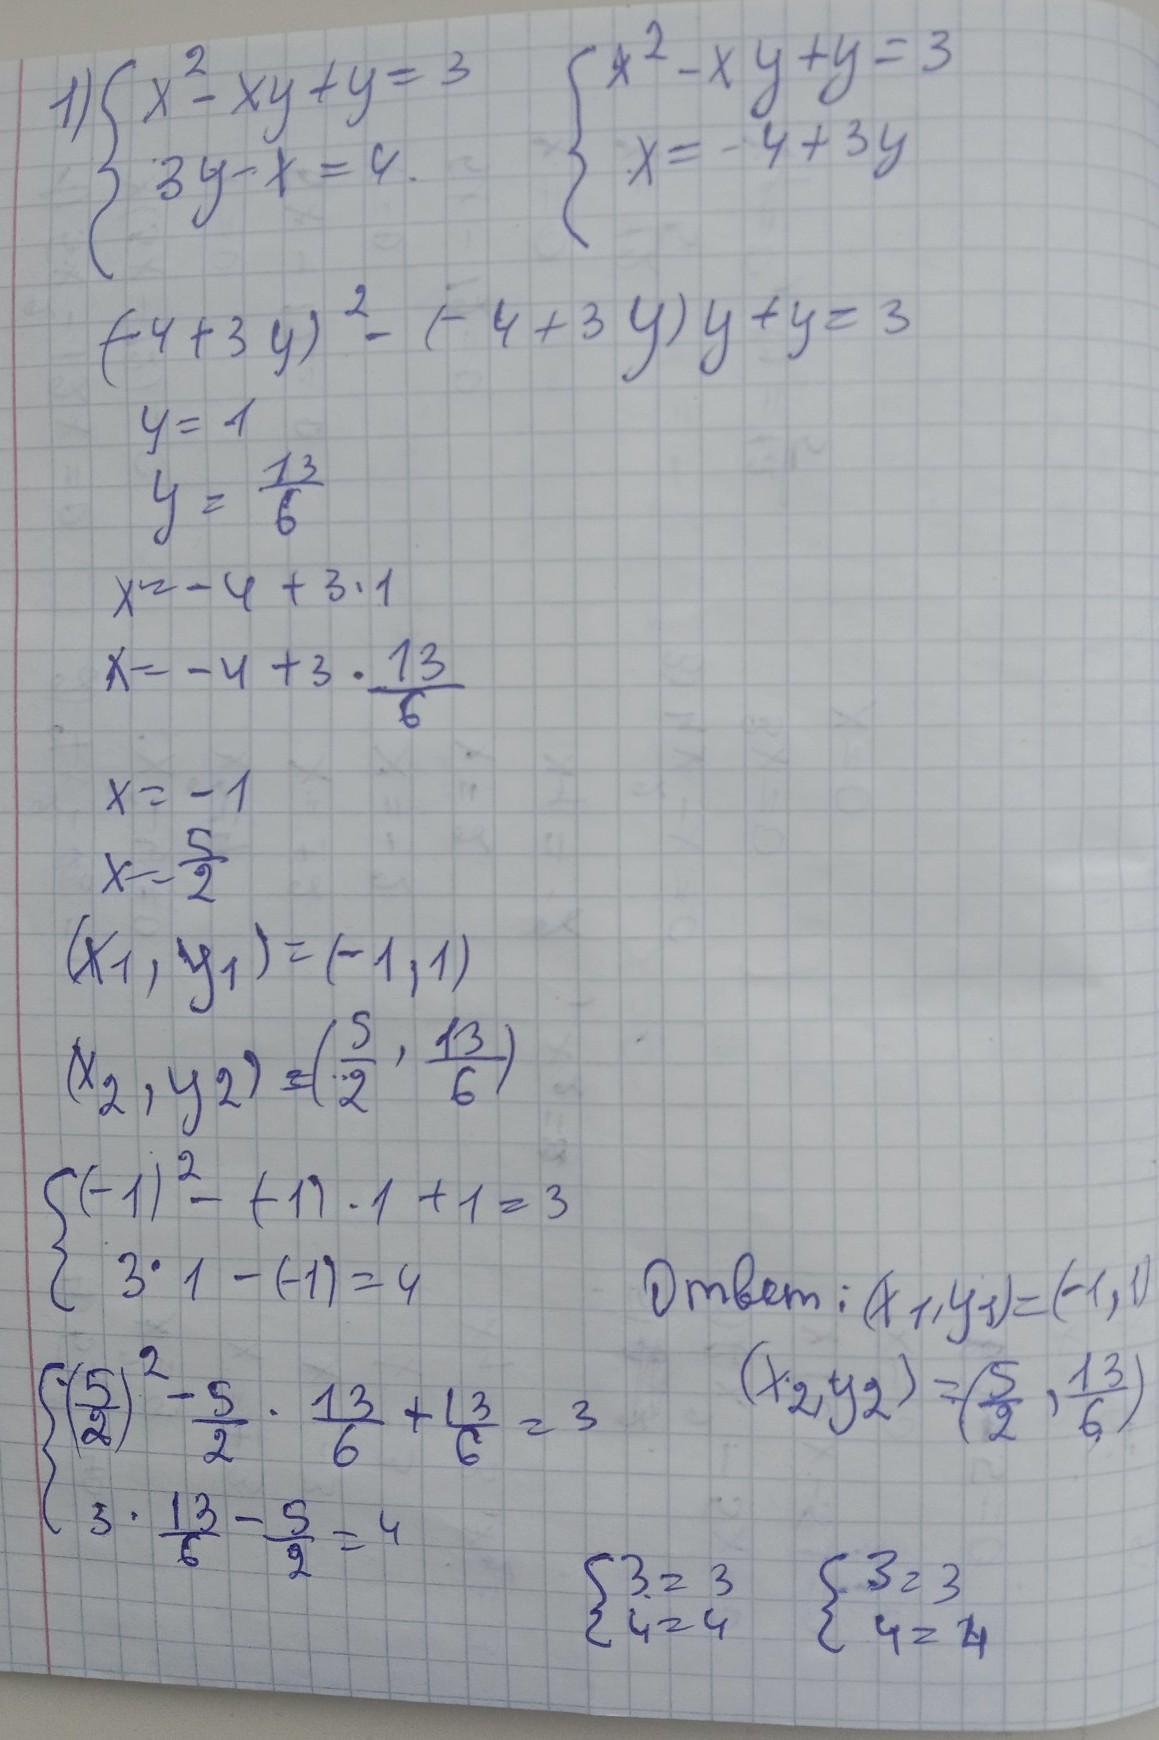 1) { x² - xy + y = 3 { x² - xy + y = 3
3y - x = 4. x = -4 + 3y
(-4 + 3y)² - (-4 + 3y) y + y = 3
y = 1
y = 13/6
x = -4 + 3·1
x = -4 + 3 · 13/6
x = -1
x = 5/2
(x1, y1) = (-1, 1)
(x2, y2) = (5/2, 13/6)
{ (-1)² - (-1) · 1 + 1 = 3
3 · 1 - (-1) = 4
Ответ: (x1, y1) = (-1, 1)
(x2, y2) = (5/2, 13/6)
{ (5/2)² - 5/2 · 13/6 + 13/6 = 3
3 · 13/6 - 5/2 = 4
{ 3 = 3 { 3 = 3
4 = 4 4 = 4